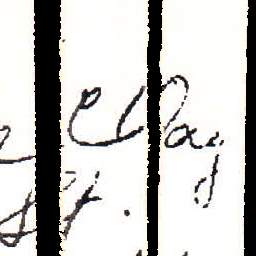 Clay
St.